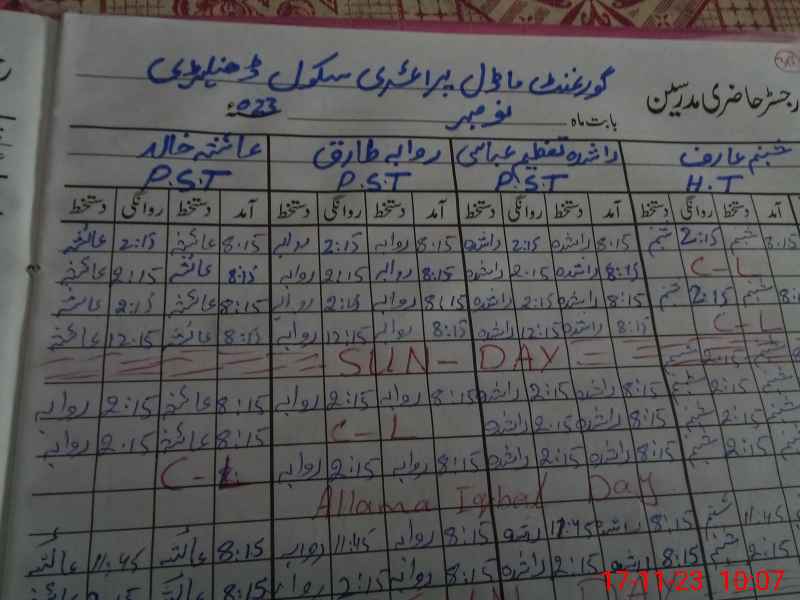 رجسٹر حاضری مدرسین گورنمنٹ ماڈل پرائمری سکول
بابت ماہ نومبر 2023ء
شبنم عارف راشدہ تعظیم عباسی روابہ طارق عائشہ خالد
H.T P.S.T P.S.T P.S.T
آمد دستخط روانگی دستخط آمد دستخط روانگی دستخط آمد دستخط روانگی دستخط آمد دستخط روانگی دستخط
8:15 شبنم 2:15 شبنم 8:15 راشدہ 2:15 راشدہ 8:15 روابہ 2:15 روابہ 8:15 عائشہ 2:15 عائشہ
C-L 8:15 راشدہ 2:15 راشدہ 8:15 روابہ 2:15 روابہ 8:15 عائشہ 2:15 عائشہ
8:15 شبنم 2:15 شبنم 8:15 راشدہ 2:15 راشدہ 8:15 روابہ 2:15 روابہ 8:15 عائشہ 2:15 عائشہ
C-L 8:15 راشدہ 12:15 راشدہ 8:15 روابہ 12:15 روابہ 8:15 عائشہ 12:15 عائشہ
SUN-DAY
شبنم 2:15 شبنم 8:15 راشدہ 2:15 راشدہ 8:15 روابہ 2:15 روابہ 8:15 عائشہ 2:15 روابہ
شبنم 2:15 شبنم 8:15 راشدہ 2:15 راشدہ C-L 8:15 عائشہ 2:15 روابہ
شبنم 2:15 شبنم 8:15 راشدہ 2:15 راشدہ 8:15 روابہ 2:15 روابہ C-L
Allama Iqbal Day
11:45 شبنم 8:15 راشدہ 11:45 8:15 روابہ 11:45 روابہ 8:15 عائشہ 11:45 عائشہ
2:15 شبنم 8:15 راشدہ 2:15 راشدہ 8:15 روابہ 2:15 روابہ 8:15 عائشہ 2:15 عائشہ
17/11/23 10:07